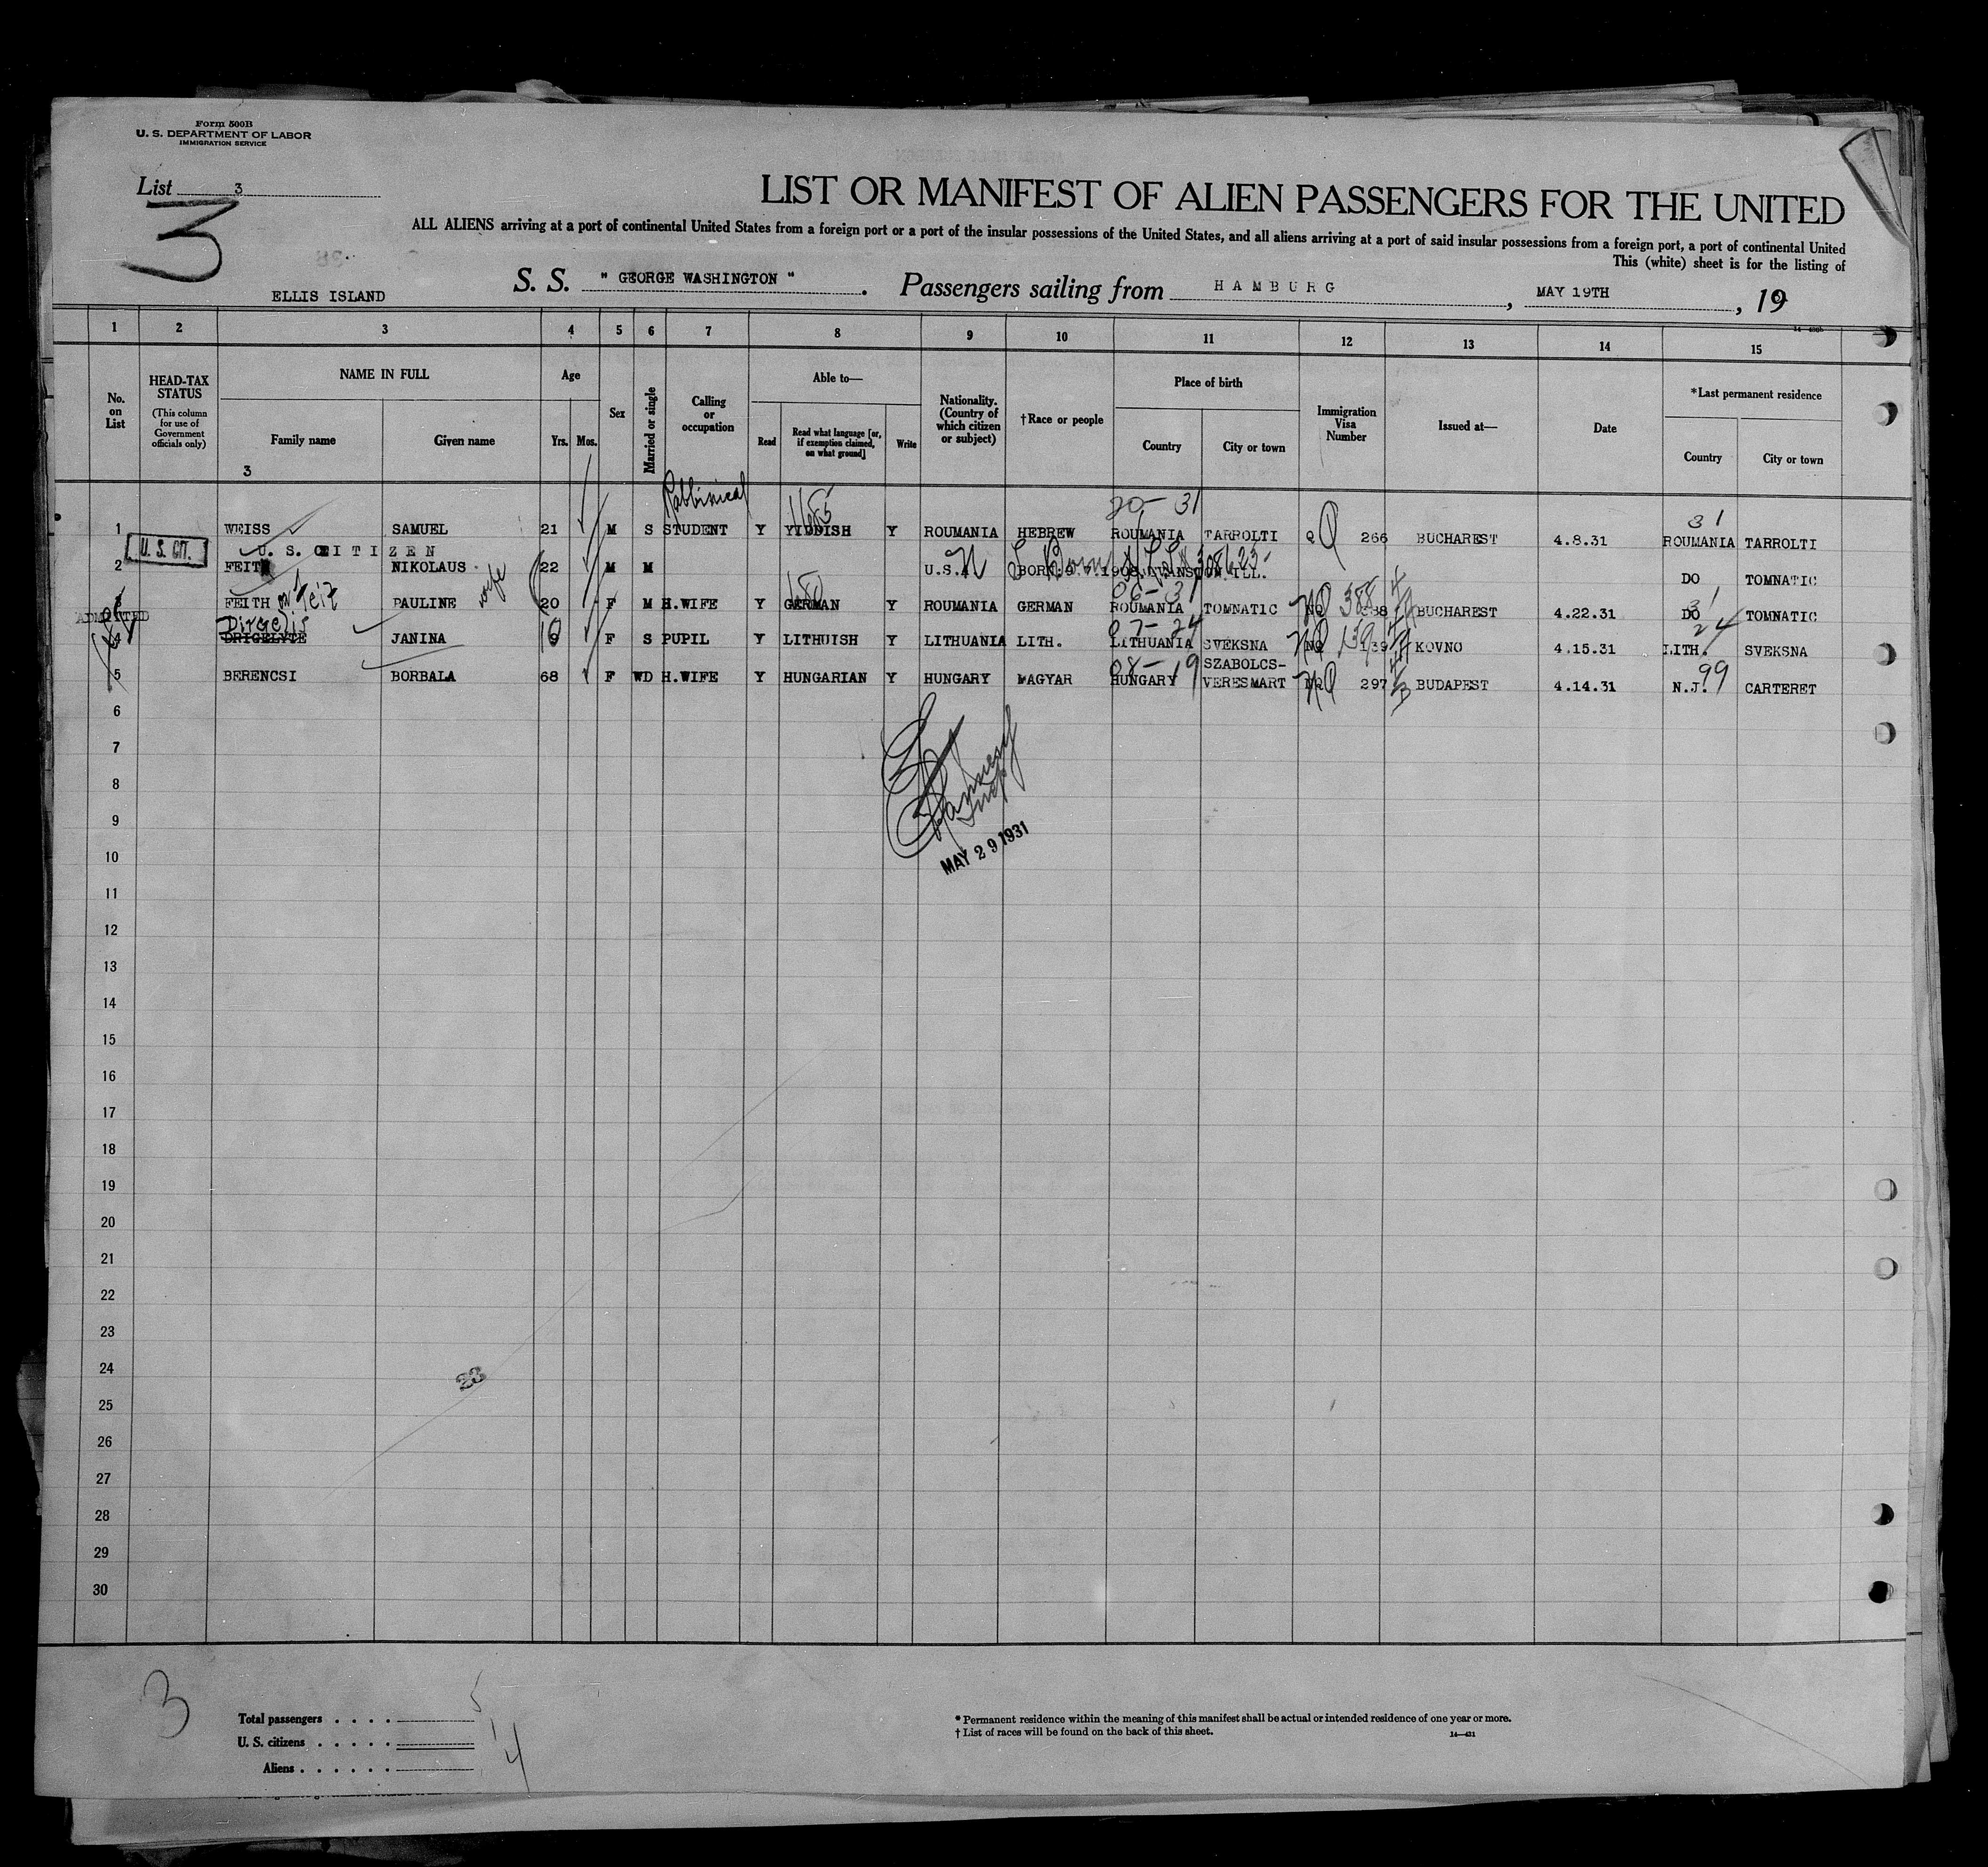 Form 500B
U. S. DEPARTMENT OF LABOR
IMMIGRATION SERVICE
List 3
3
LIST OR MANIFEST OF ALIEN PASSENGERS FOR THE UNITED
ALL ALIENS arriving at a port of continental United States from a foreign port or a port of the insular possessions of the United States, and all aliens arriving at a port of said insular possessions from a foreign port, a port of continental United
This (white) sheet is for the listing of
ELLIS ISLAND
S. S. " GEORGE WASHINGTON " . Passengers sailing from HAMBURG , MAY 19TH , 19
1 2 3 4 5 6 7 8 9 10 11 12 13 14 15
No. on List
HEAD-TAX STATUS
(This column for use of Government officials only)
NAME IN FULL
Family name Given name
3
Age
Yrs. Mos.
Sex
Married or single
Calling or occupation
Able to—
Read
Read what language [or, if exemption claimed, on what ground]
Write
Nationality. (Country of which citizen or subject)
†Race or people
Place of birth
Country City or town
Immigration Visa Number
Issued at—
Date
*Last permanent residence
Country City or town
Rabbinical
20-31
31
1 WEISS SAMUEL 21 M S STUDENT Y YIDDISH Y ROUMANIA HEBREW ROUMANIA TARROLTI Q 266 BUCHAREST 4.8.31 ROUMANIA TARROLTI
U. S. CIT. U. S. CITIZEN
2 FEIT NIKOLAUS 22 M M U.S.A. BORN 1908 EVANSTON ILL. DO TOMNATIC
wife
06-31
3 FEITH or Feit PAULINE 20 F M H.WIFE Y GERMAN Y ROUMANIA GERMAN ROUMANIA TOMNATIC NQ 388 BUCHAREST 4.22.31 DO TOMNATIC
ADMITTED
Dirgelis
07-24
24
4 DRIGELYTE JANINA 10 F S PUPIL Y LITHUISH Y LITHUANIA LITH. LITHUANIA SVEKSNA NQ 139 KOVNO 4.15.31 LITH. SVEKSNA
08-19 SZABOLCS-
99
5 BERENCSI BORBALA 68 F WD H.WIFE Y HUNGARIAN Y HUNGARY MAGYAR HUNGARY VERESMART NQ 297 BUDAPEST 4.14.31 N.J. CARTERET
6
7
8
9
MAY 29 1931
10
11
12
13
14
15
16
17
18
19
20
21
22
23
24
25
26
27
28
29
30
3
Total passengers . . . . 5
U. S. citizens . . . . . 1
Aliens . . . . . . 4
* Permanent residence within the meaning of this manifest shall be actual or intended residence of one year or more.
† List of races will be found on the back of this sheet.
14—431